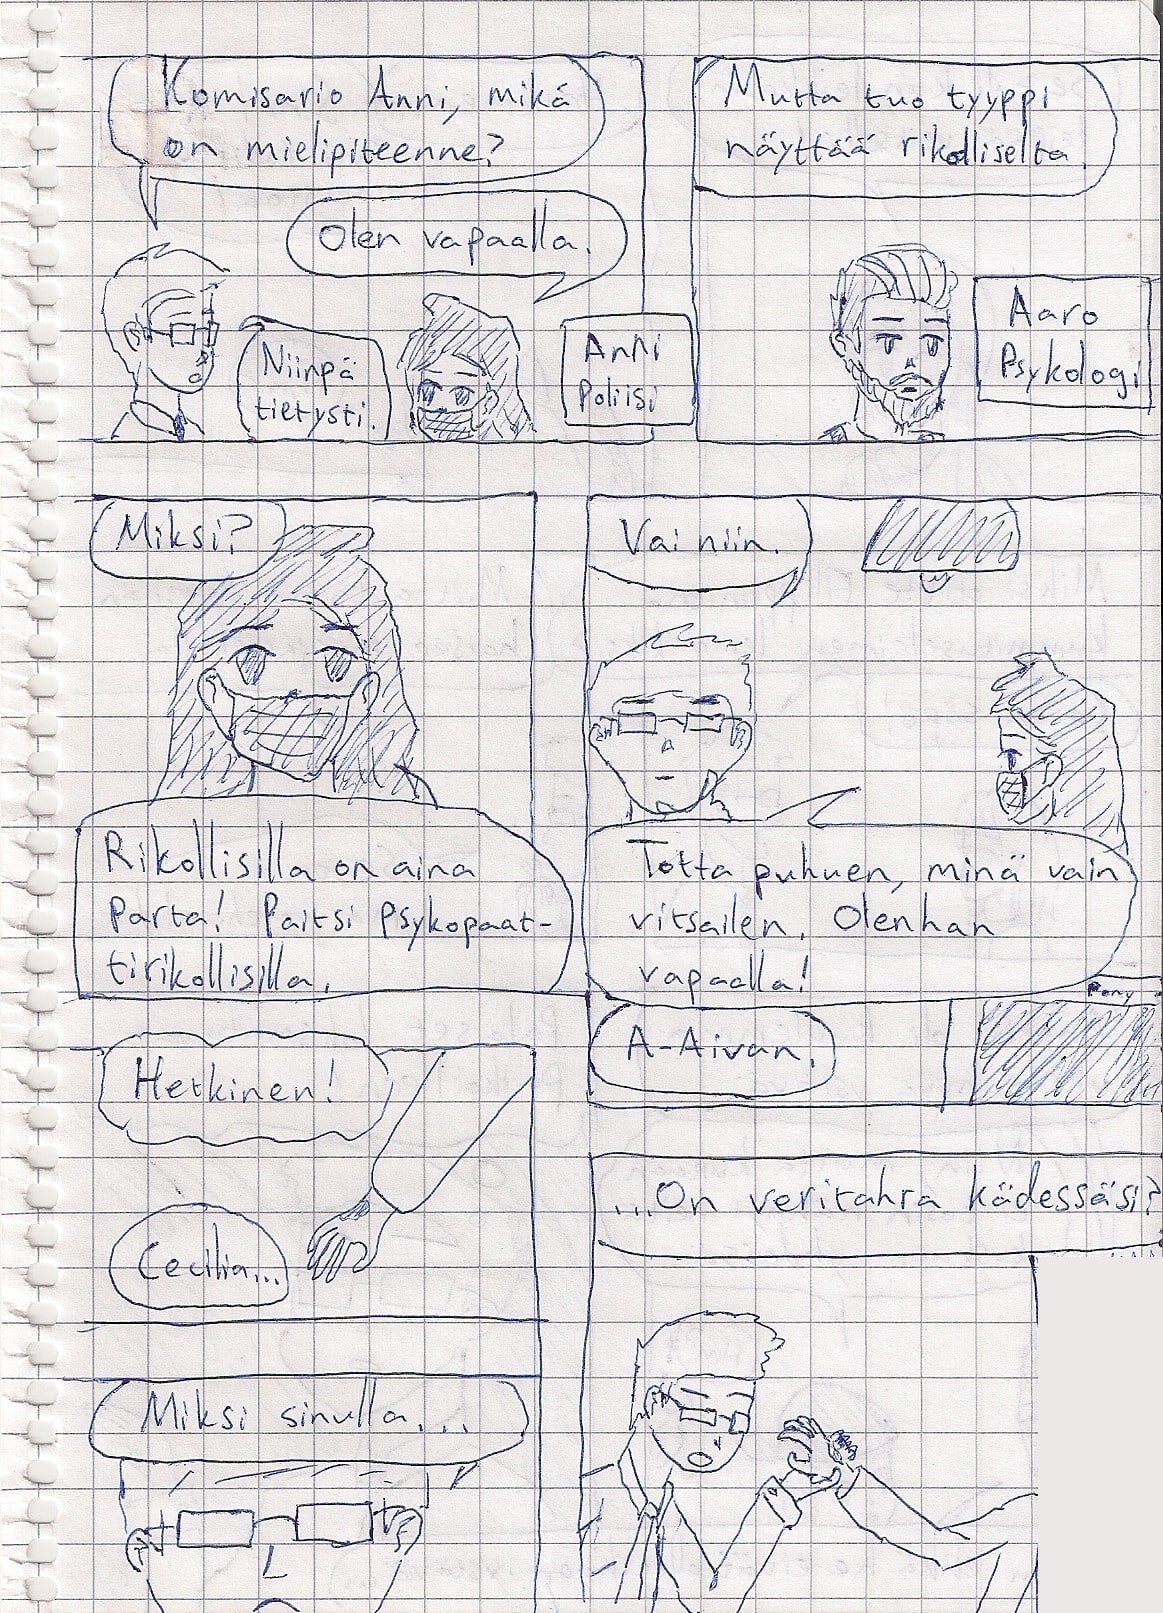 Komisario Anni, mikä
on mielipiteenne?
Olen vapaalla.
Niinpä
tietysti.
Anni
Poliisi
Mutta tuo tyyppi
näyttää rikolliselta.
Aaro
Psykologi
Miksi?
Rikollisilla on aina
parta! Paitsi psykopaat-
tirikollisilla.
Vai niin.
Totta puhuen, minä vain
vitsailen. Olenhan
vapaalla!
A-Aivan.
Pony
Hetkinen!
Cecilia...
Miksi sinulla...
...On veritahra kädessäsi?